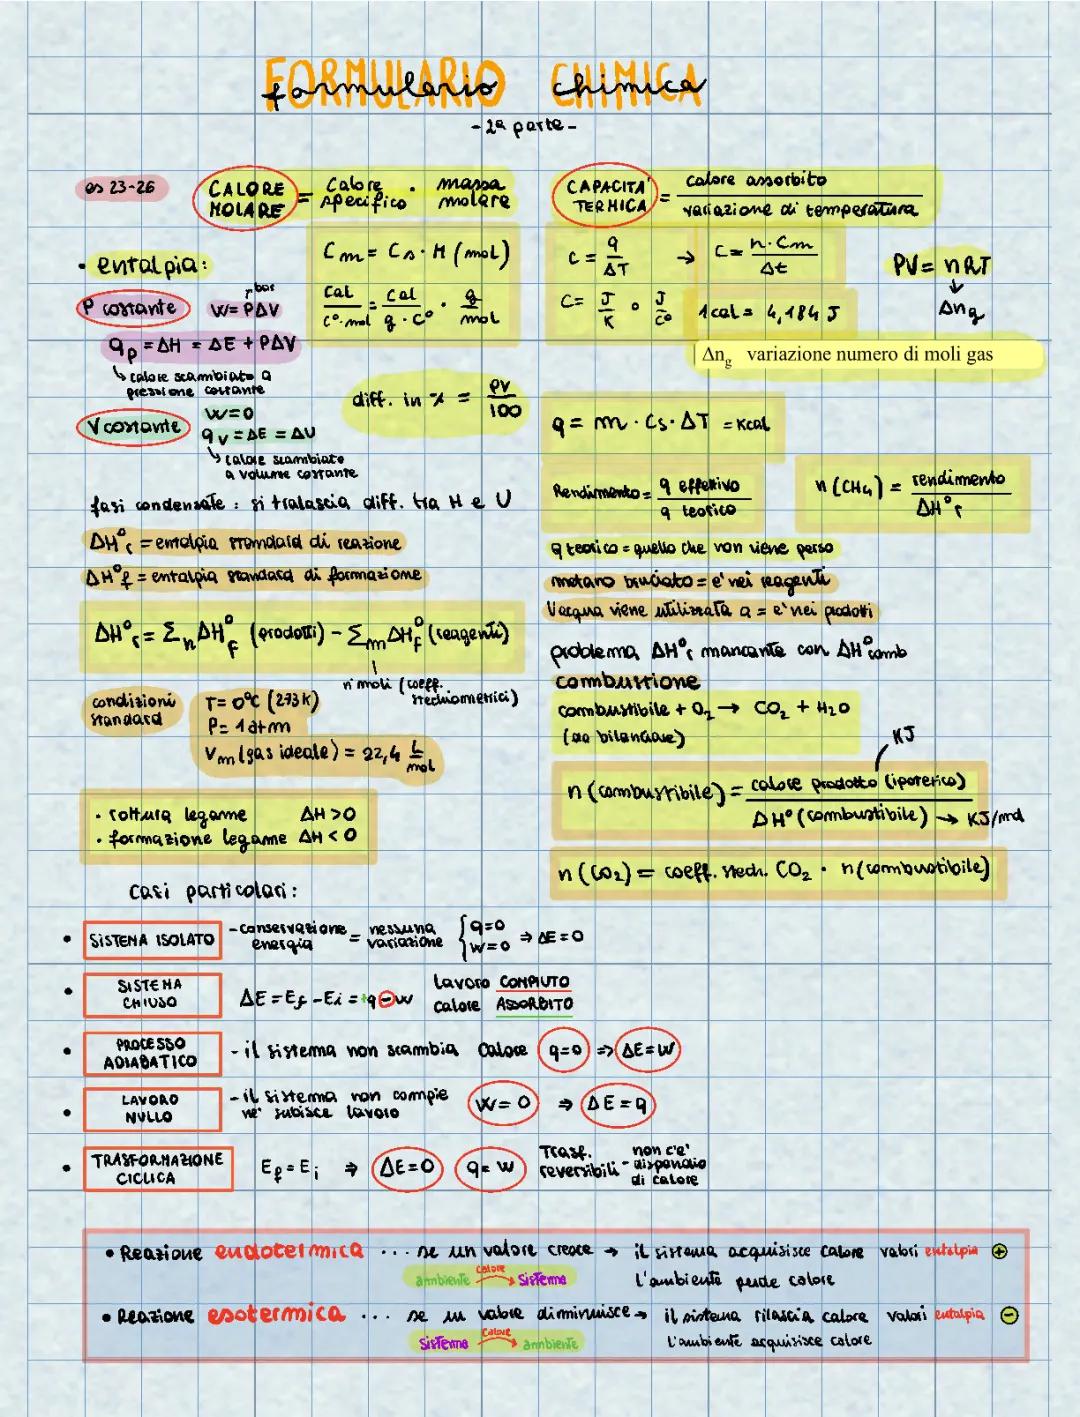 FORMULARIO CHIMICA
formulario chimica
- 2ª parte -
es 23-26
CALORE MOLARE = Calore specifico · massa molare
Cm = Cs · M (mol)
cal/C°·mol = cal/g·C° · g/mol
CAPACITA' TERMICA = calore assorbito / variazione di temperatura
C = q/ΔT → C = n·Cm/Δt
C = J/K o J/C°
1 cal = 4,184 J
PV = nRT
↓
Δng
Δng variazione numero di moli gas
• entalpia:
P costante W = PΔV
bar
qp = ΔH = ΔE + PΔV
↳ calore scambiato a
pressione costante
V costante W=0
qv = ΔE = ΔU
↳ calore scambiato
a volume costante
diff. in % = PV/100
q = m · Cs · ΔT = Kcal
fasi condensate : si tralascia diff. tra H e U
ΔH°r = entalpia standard di reazione
ΔH°f = entalpia standard di formazione
ΔH°r = Σn ΔH°f (prodotti) - Σm ΔH°f (reagenti)
n° moli (coeff.
stechiometrici)
condizioni
standard
T= 0°C (273K)
P= 1 atm
Vm (gas ideale) = 22,4 L/mol
• rottura legame ΔH >0
• formazione legame ΔH < 0
Rendimento = q effettivo / q teorico
n (CH4) = rendimento / ΔH°r
q teorico = quello che non viene perso
metano bruciato = e' nei reagenti
l'acqua viene utilizzata a = e' nei prodotti
problema ΔH°r mancante con ΔH°comb
combustione
combustibile + O2 → CO2 + H2O
(da bilanciare)
KJ
n (combustibile) = calore prodotto (ipotetico) / ΔH° (combustibile) → KJ/mol
n (CO2) = coeff. stech. CO2 · n (combustibile)
casi particolari :
• SISTEMA ISOLATO - conservazione energia = nessuna variazione { q=0 W=0 ⇒ ΔE=0
• SISTEMA CHIUSO ΔE = Ef - Ei = +q - w lavoro COMPIUTO
calore ASSORBITO
• PROCESSO ADIABATICO - il sistema non scambia calore q=0 ⇒ ΔE=W
• LAVORO NULLO - il sistema non compie
ne' subisce lavoro W=0 ⇒ ΔE=q
• TRASFORMAZIONE CICLICA Ef = Ei ⇒ ΔE=0 q=W Trasf. reversibili - non c'e' dispendio di calore
• Reazione endotermica ... se un valore cresce → il sistema acquisisce calore valori entalpia +
ambiente calore → sistema l'ambiente perde calore
• Reazione esotermica ... se un valore diminuisce → il sistema rilascia calore valori entalpia -
sistema calore → ambiente l'ambiente acquisisce calore